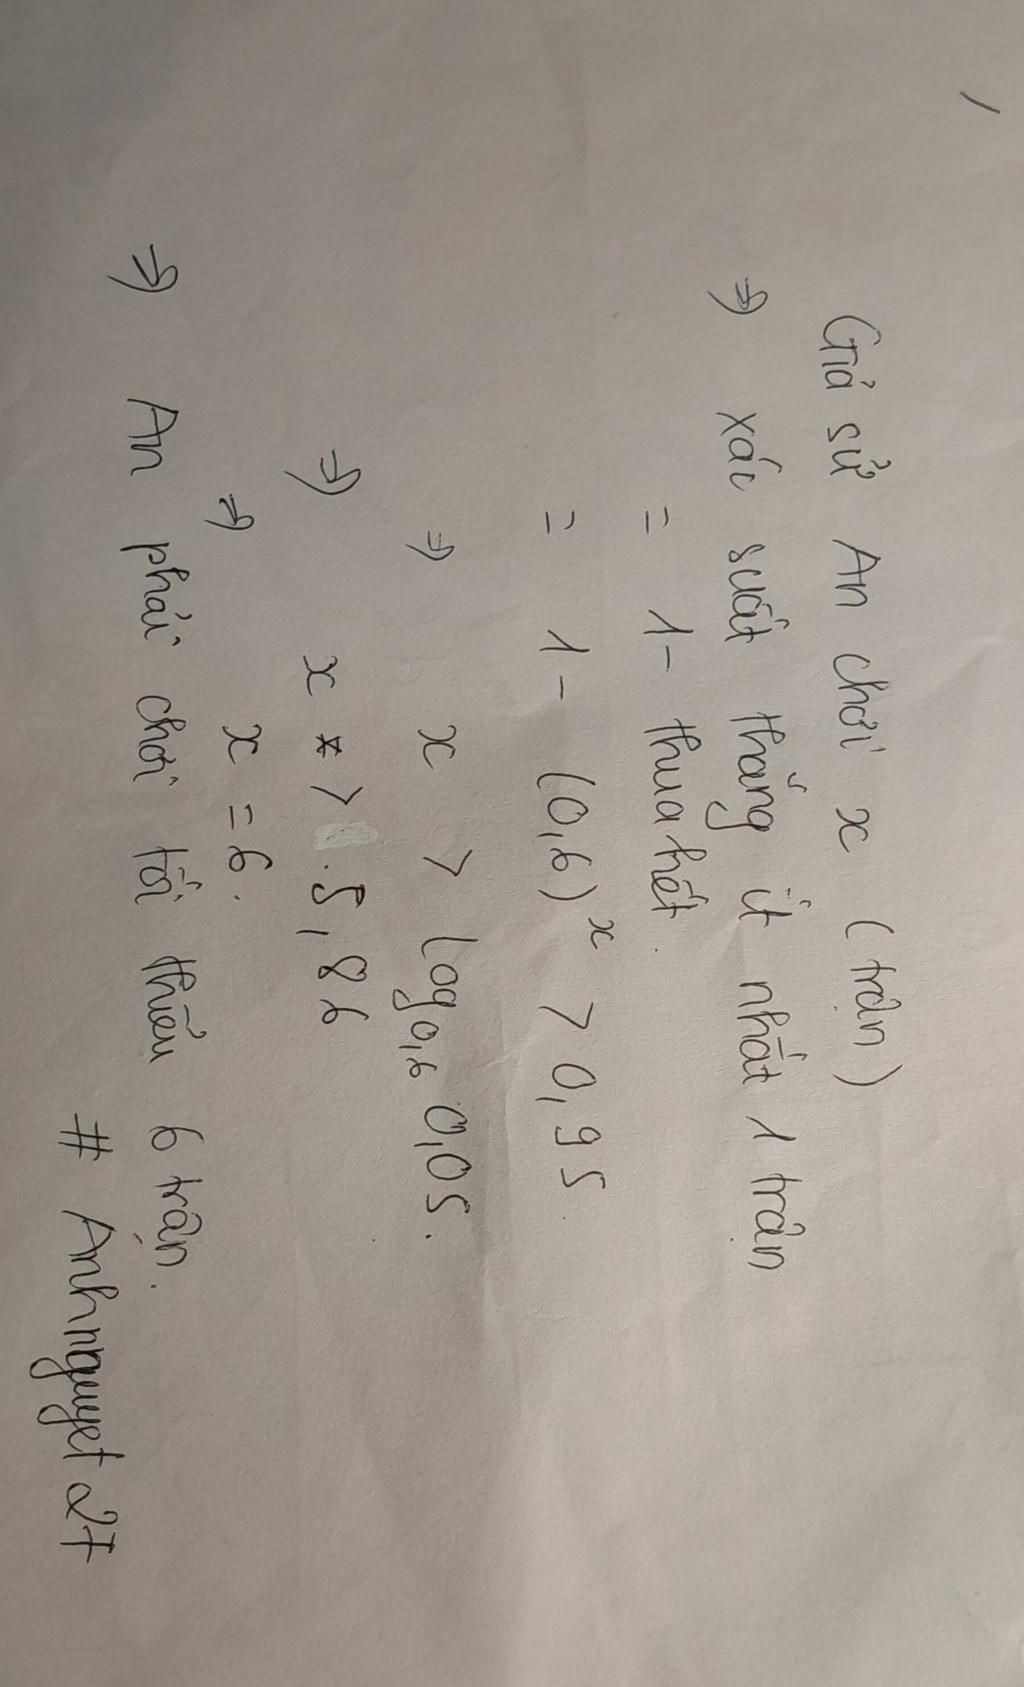 Giả sử An chơi x (trận)
⇒ xác suất thắng ít nhất 1 trận
= 1 - thua hết.
= 1 - (0,6)^x > 0,95.
⇒ x > log_0,6 0,05.
⇒ x > 5,86
⇒ x = 6.
⇒ An phải chơi tối thiểu 6 trận.
# Anhnguyet 27